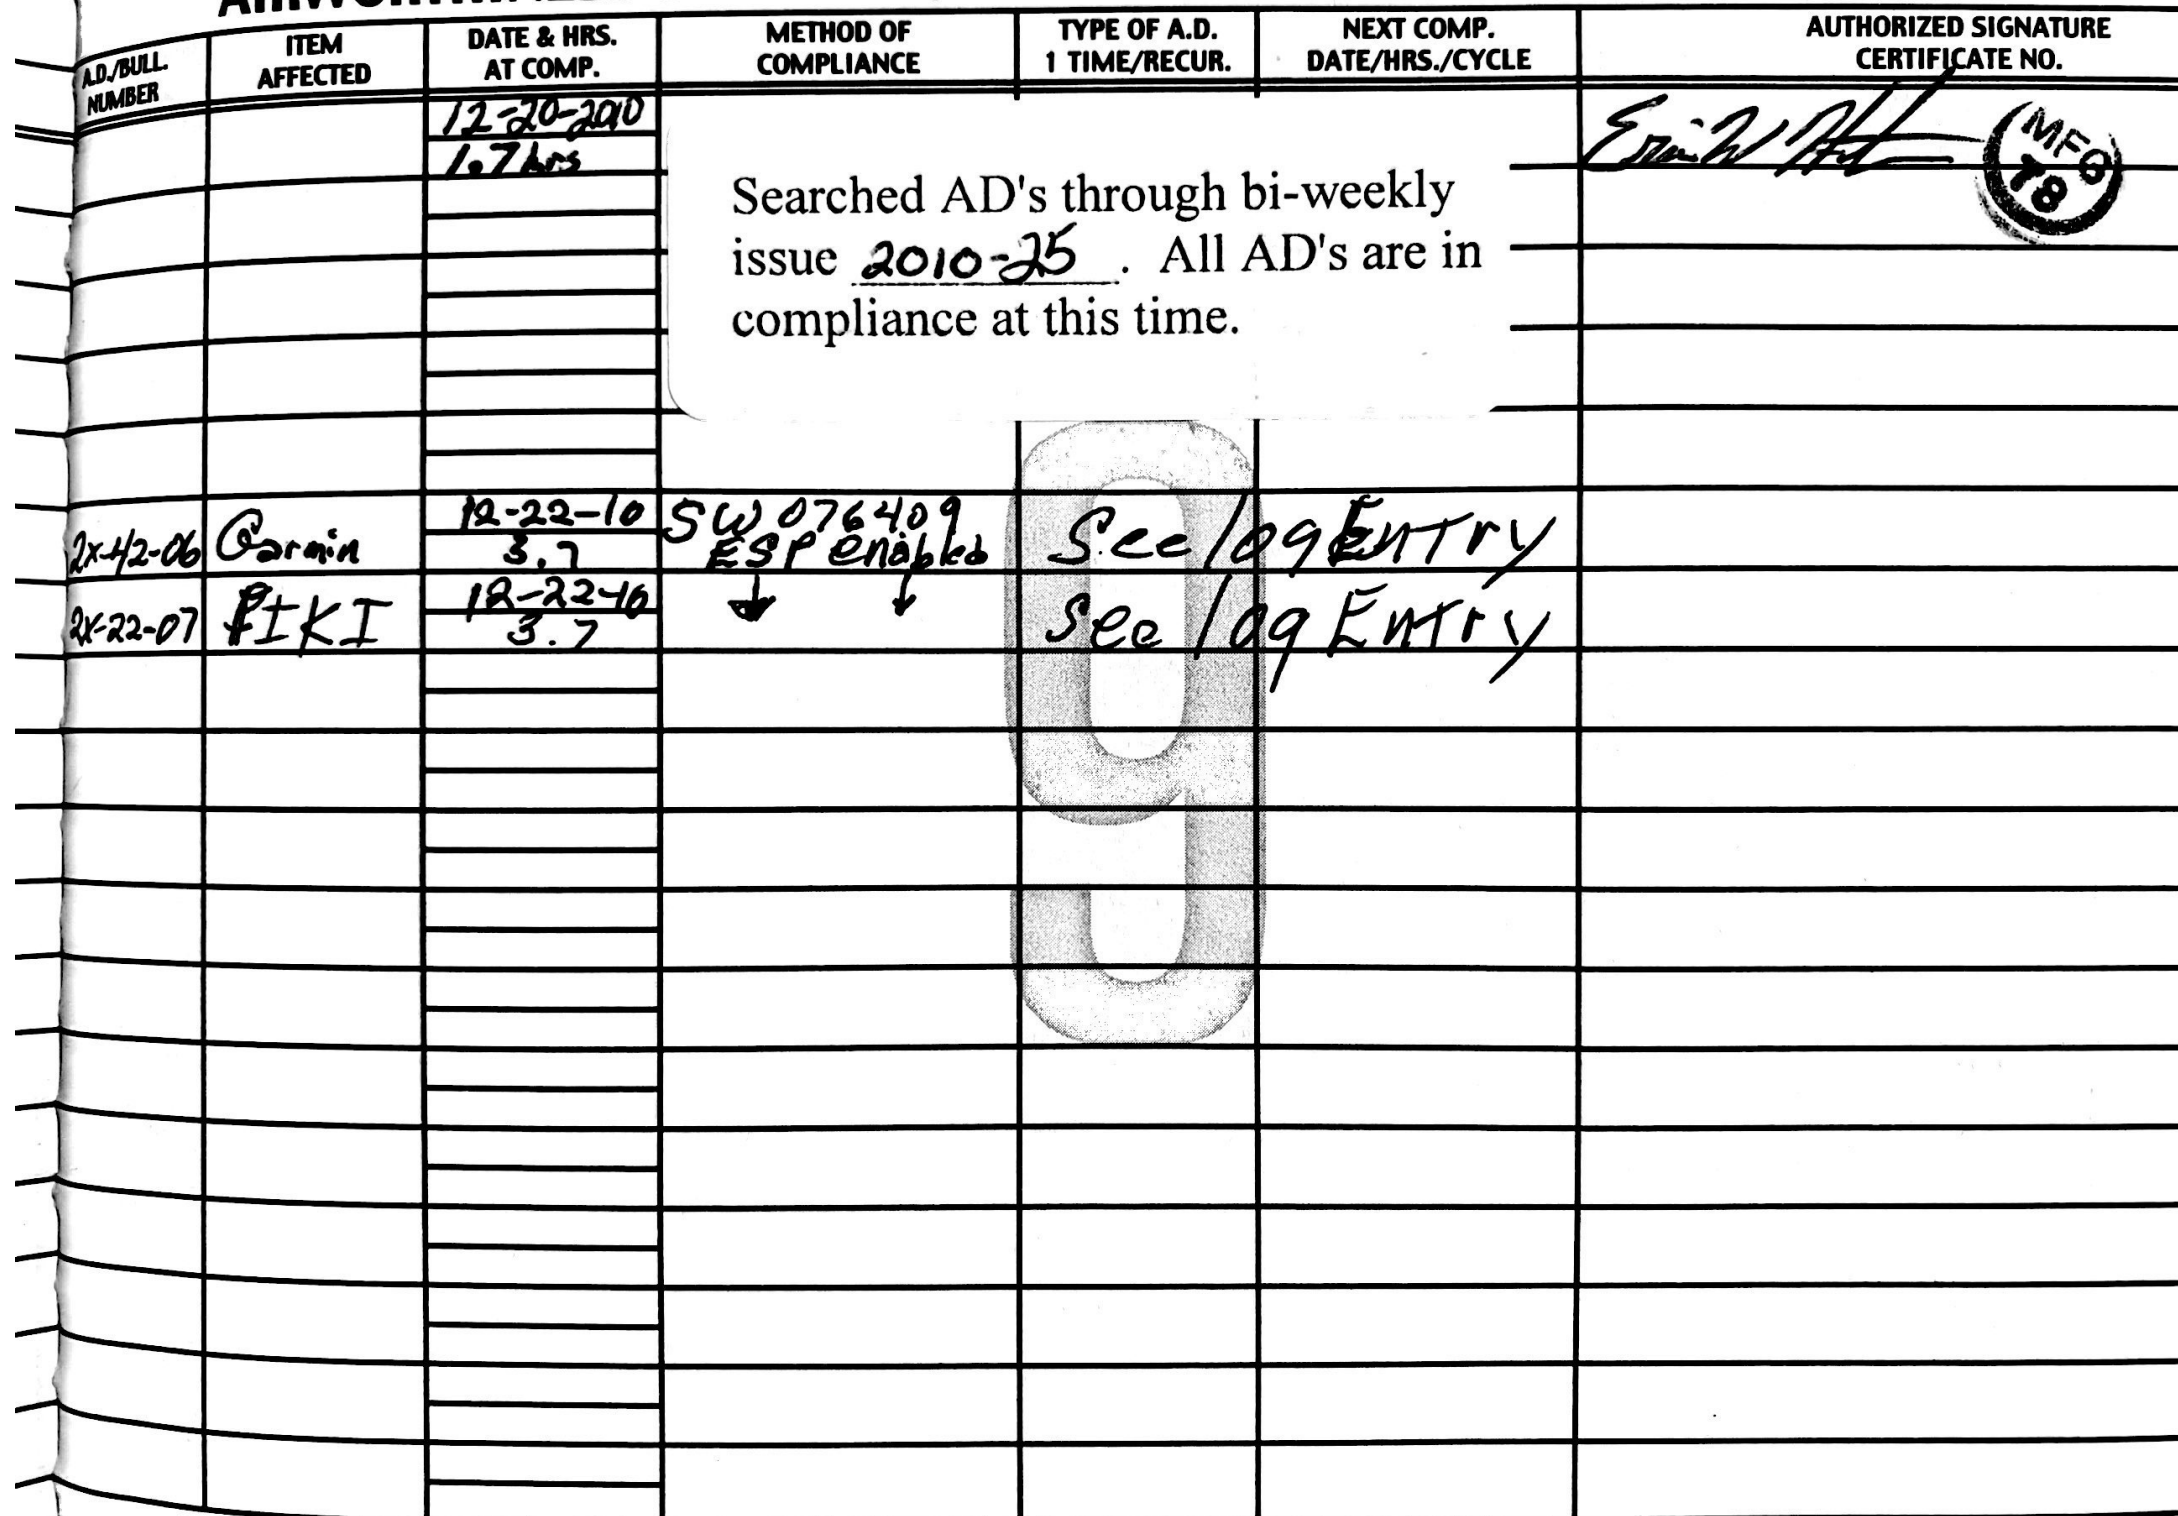 A.D./BULL. NUMBER | ITEM AFFECTED | DATE & HRS. AT COMP. | METHOD OF COMPLIANCE | TYPE OF A.D. 1 TIME/RECUR. | NEXT COMP. DATE/HRS./CYCLE | AUTHORIZED SIGNATURE CERTIFICATE NO.
12-20-2010
1.7 hrs
MFG
78
Searched AD's through bi-weekly
issue 2010-25. All AD's are in
compliance at this time.
2x-42-06 Garmin 12-22-10 3.7 SW 0764.09 ESP enabled See log Entry
2x-22-07 FIKI 12-22-10 3.7 See log Entry
9